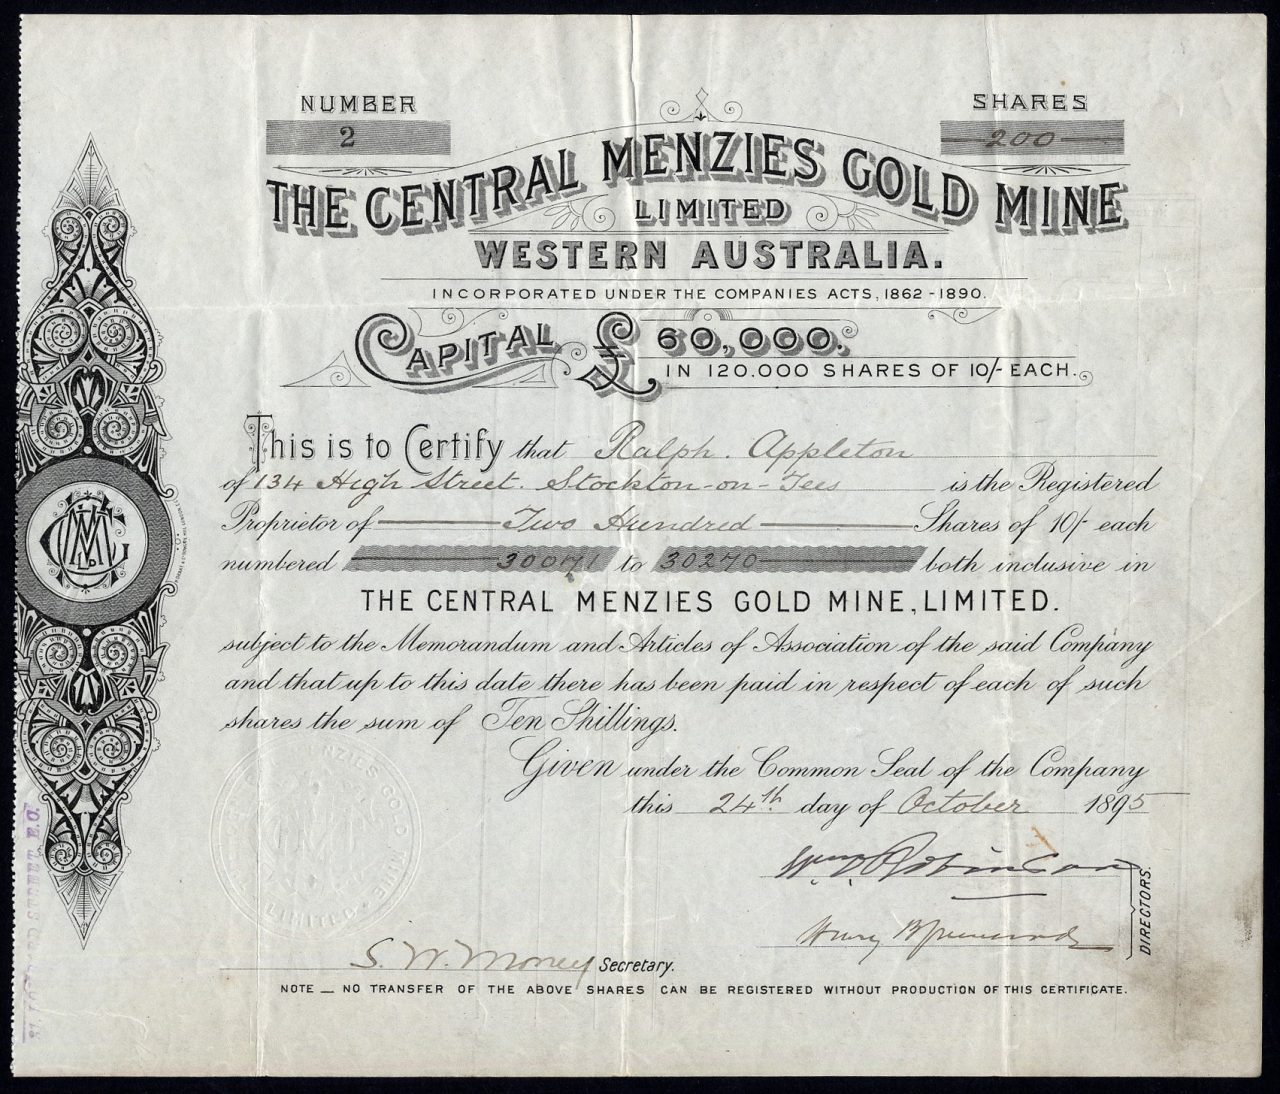 NUMBER
2
SHARES
200
THE CENTRAL MENZIES GOLD MINE
LIMITED
WESTERN AUSTRALIA.
INCORPORATED UNDER THE COMPANIES ACTS, 1862-1890.
CAPITAL £ 60,000.
IN 120.000 SHARES OF 10/- EACH.
This is to Certify that Ralph. Appleton
of 134 High Street. Stockton-on-Tees is the Registered
Proprietor of Two Hundred Shares of 10/- each
numbered 30071 to 30270 both inclusive in
THE CENTRAL MENZIES GOLD MINE, LIMITED.
subject to the Memorandum and Articles of Association of the said Company
and that up to this date there has been paid in respect of each of such
shares the sum of Ten Shillings.
Given under the Common Seal of the Company
this 24th day of October 1895
Wm. Robinson
Henry
DIRECTORS.
S. W. Money Secretary.
NOTE — NO TRANSFER OF THE ABOVE SHARES CAN BE REGISTERED WITHOUT PRODUCTION OF THIS CERTIFICATE.
MENZIES GOLD MINE
LIMITED